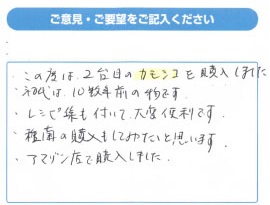 ご意見・ご要望をご記入ください
・この度は、2台目のカモシコを購入しました
初代は、10数年前の物です。
・レシピ集も付いて、大変便利です。
・種菌の購入もしてみたいと思います。
・アマゾン店で購入しました。